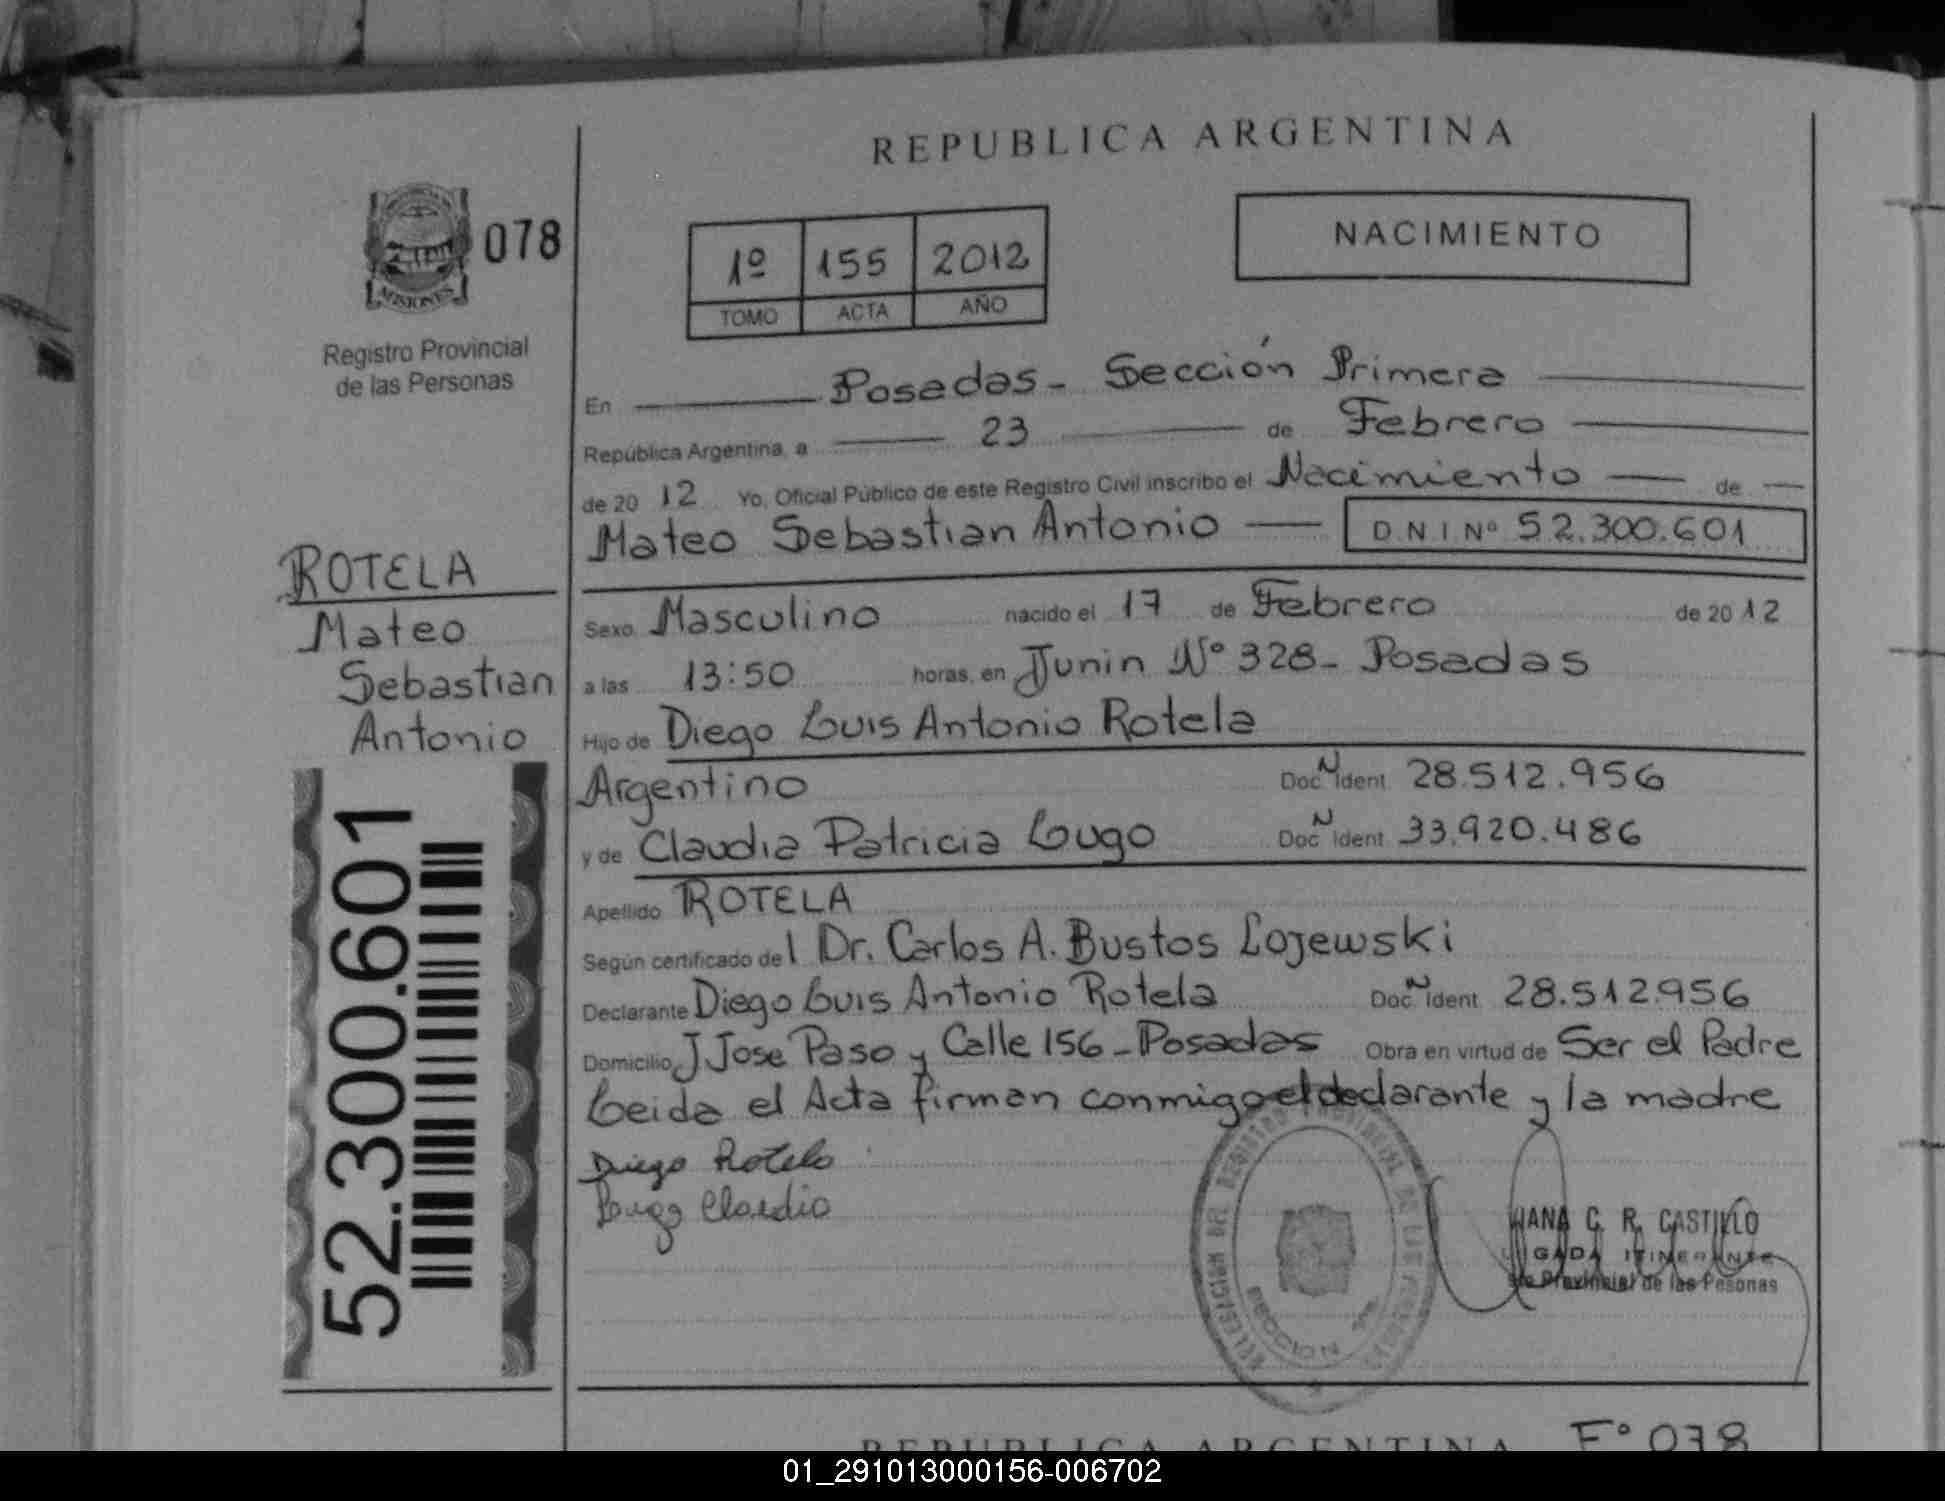 REPUBLICA ARGENTINA
MISIONES
078
Registro Provincial
de las Personas
1º 155 2012
TOMO ACTA AÑO
NACIMIENTO
En Posadas - Sección Primera
República Argentina, a 23 de Febrero
de 20 12 Yo, Oficial Público de este Registro Civil inscribo el Nacimiento de
Mateo Sebastian Antonio D.N.I. Nº 52.300.601
ROTELA
Mateo
Sebastian
Antonio
52.300.601
Sexo Masculino nacido el 17 de Febrero de 20 12
a las 13:50 horas, en Junin Nº 328 - Posadas
Hijo de Diego Luis Antonio Rotela
Argentino Doc. N Ident. 28.512.956
y de Claudia Patricia Lugo Doc. N Ident. 33.920.486
Apellido ROTELA
Según certificado del Dr. Carlos A. Bustos Lojewski
Declarante Diego Luis Antonio Rotela Doc. N Ident. 28.512.956
Domicilio J Jose Paso y Calle 156 - Posadas Obra en virtud de Ser el Padre
Leida el Acta firman conmigo el declarante y la madre
Diego Rotela
Lugo Claudia
C. R. CASTILLO
ITINERANTE
Provincial de las Pesonas
REPUBLICA ARGENTINA Fº 078
01_291013000156-006702